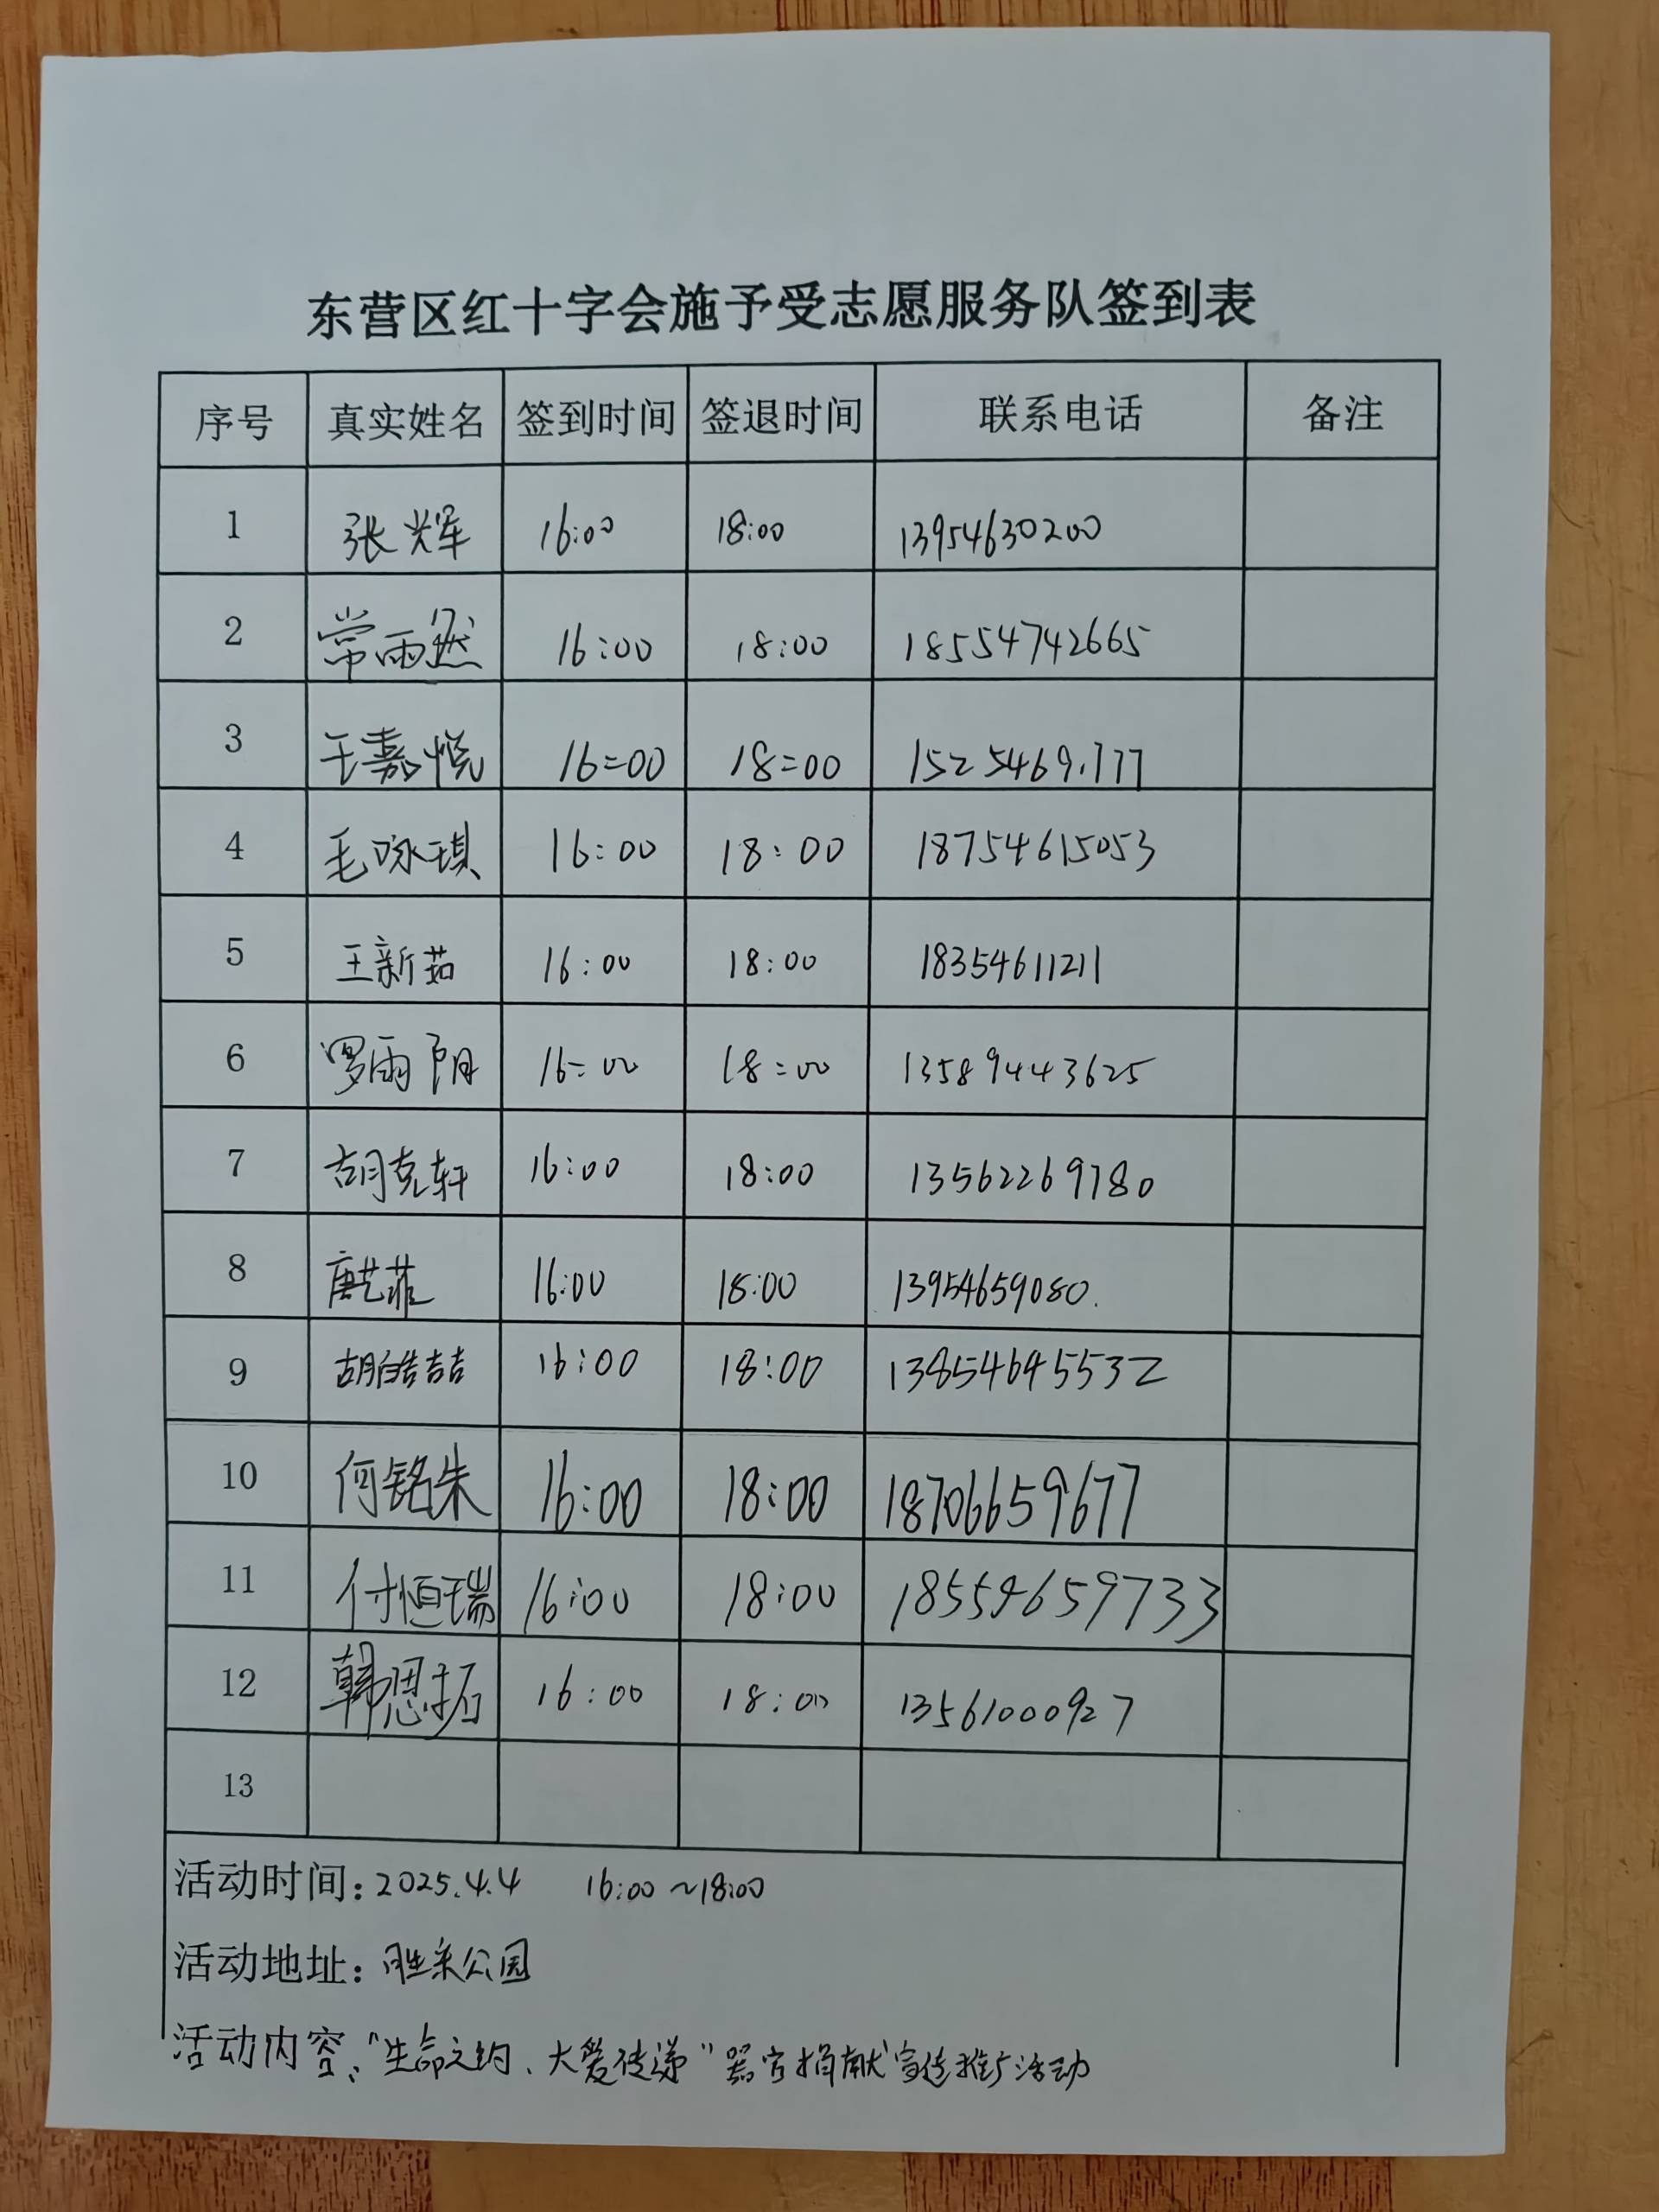 东营区红十字会施予受志愿服务队签到表
序号 真实姓名 签到时间 签退时间 联系电话 备注
1 张辉 16:00 18:00 13954630200
2 常雨然 16:00 18:00 18554742665
3 王嘉悦 16=00 18=00 15254691777
4 毛咏琪 16:00 18:00 18754615053
5 王新茹 16:00 18:00 18354611211
6 罗雨阴 16=00 18=00 13589443625
7 胡克轩 16:00 18:00 13562269780
8 唐艺菲 16:00 18:00 13954659080.
9 胡皓喆 16:00 18:00 13854645532
10 何铭朱 16:00 18:00 18706659677
11 付恒瑞 16:00 18:00 18554659733
12 韩思拓 16:00 18:00 13561000927
13
活动时间:2025.4.4 16:00~18:00
活动地址:胜采公园
活动内容:"生命之约、大爱传递"器官捐献宣传推广活动